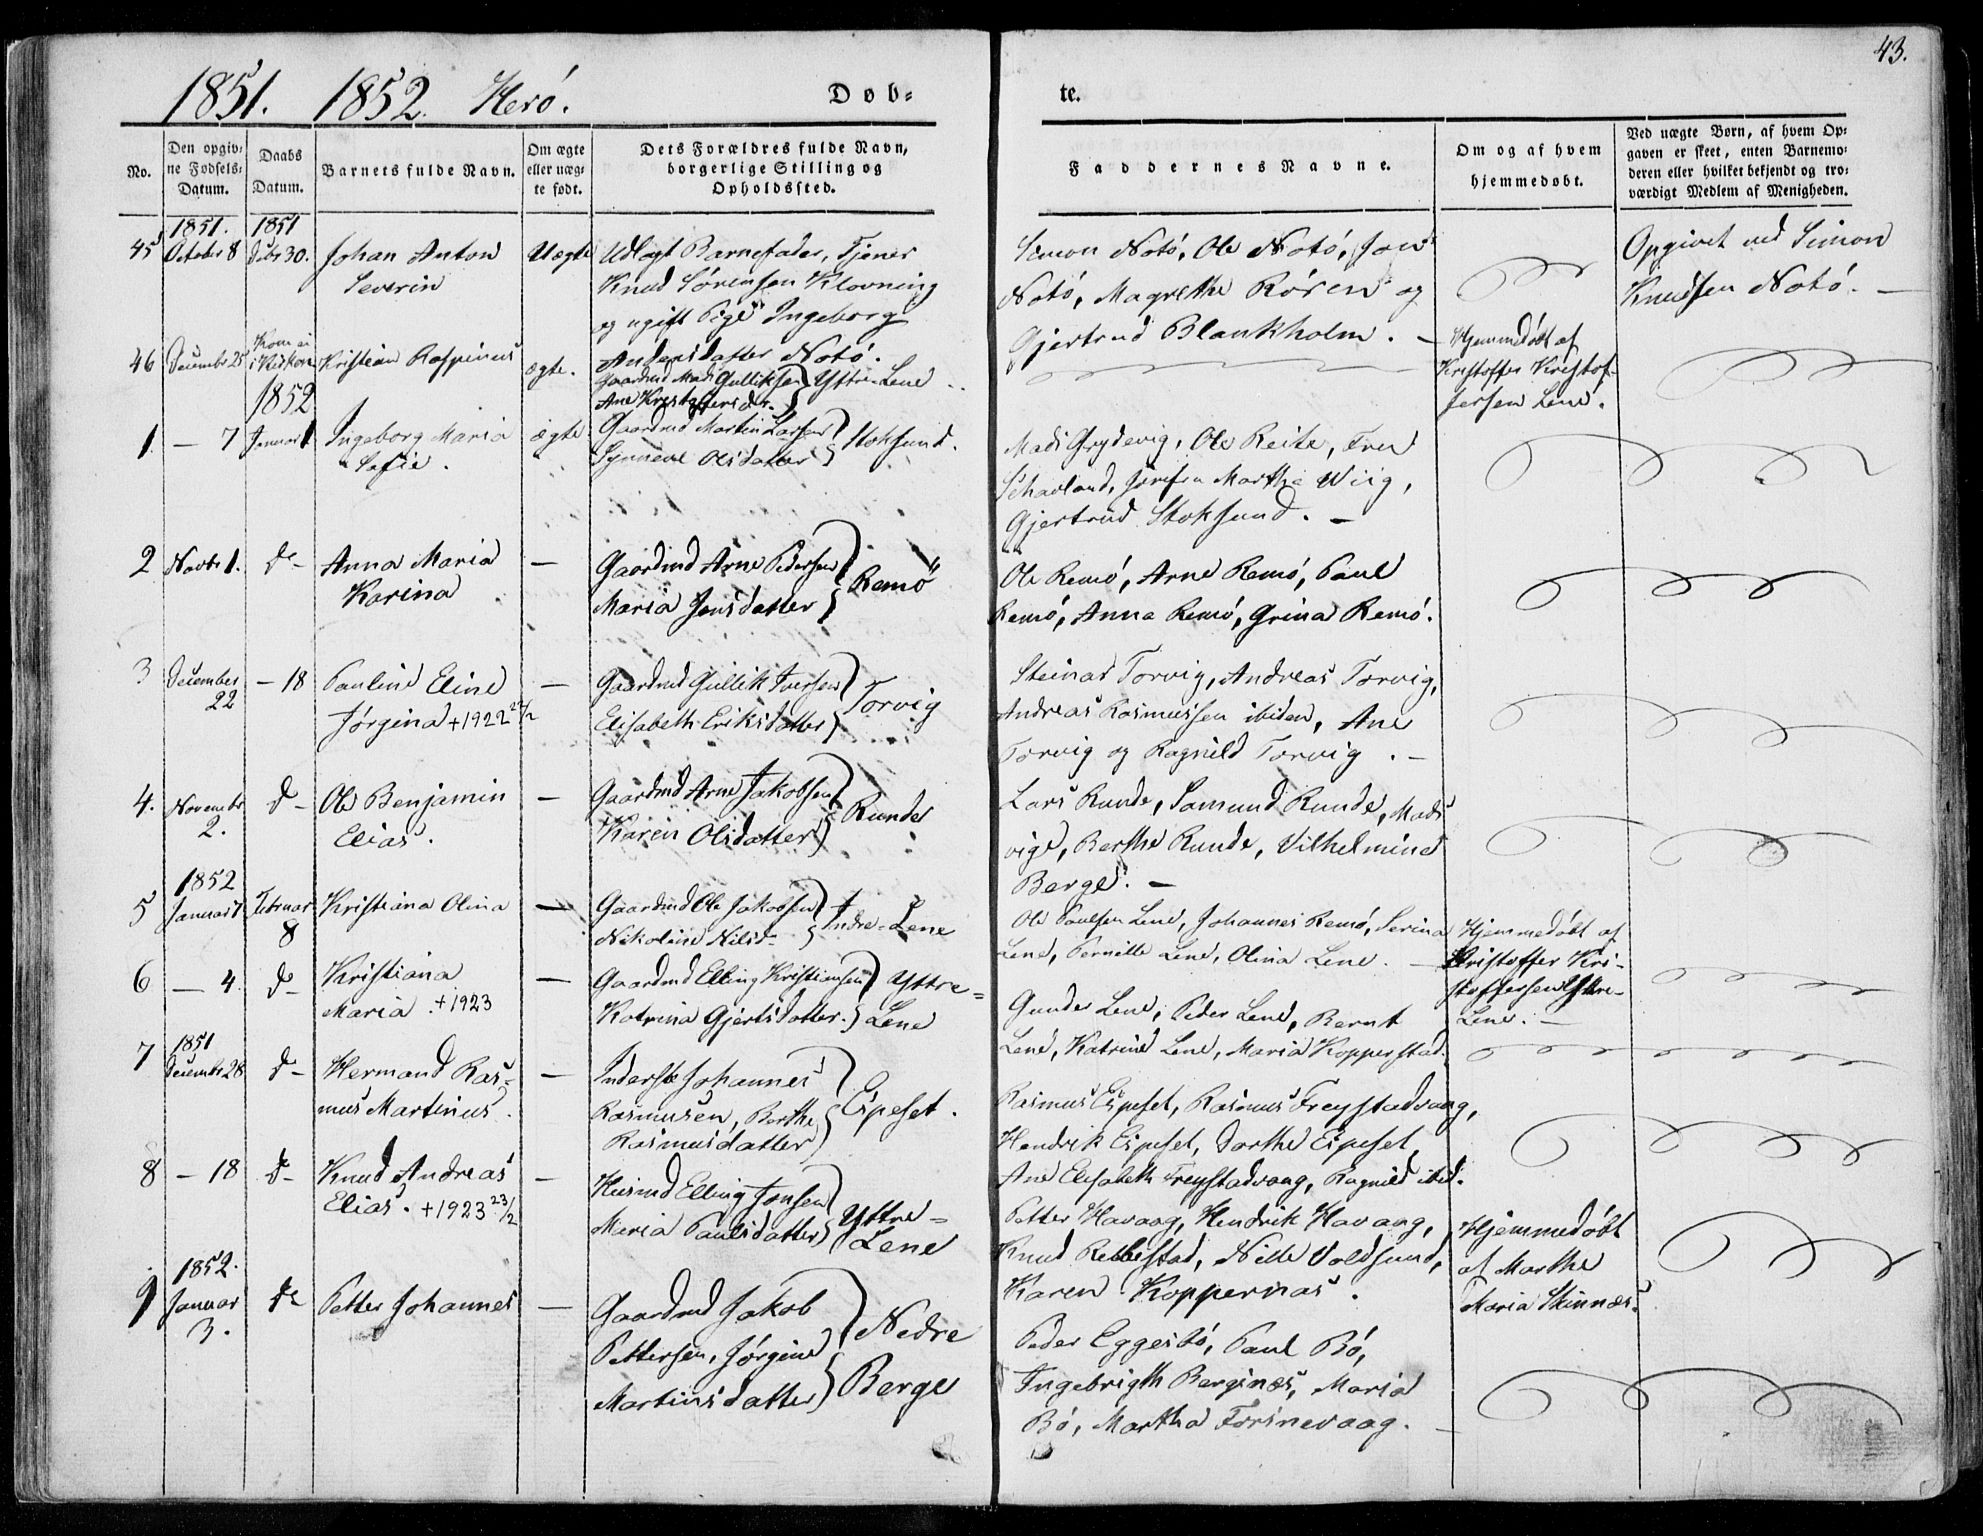 43.
1851. 1852. Herö.
Døb=
te.
No.
Den opgiv=
ne Fødsels=
Datum.
Daabs
Datum.
Barnets fulde Navn.
Om ægte
eller uæg=
te født.
Dets Forældres fulde Navn,
borgerlige Stilling og
Opholdssted.
Faddernes Navne.
Om og af hvem
hjemmedøbt.
Ved uægte Børn, af hvem Op=
gaven er skeet, enten Barnemo=
deren eller hvilket bekjendt og tro=
værdigt Medlem af Menigheden.
1851. 1851
45 October 8 Decbr 30. Johan Anton
Severin
Uægte
Udlagt Barnefader, Tjener
Knud Sørensen Klovning
og ugift Pige Ingeborg
Andersdatter Notö.
Simon Notö, Ole Notö, Jon
Notö, Magrethe Rören og
Gjertrud Blankholm. –
Opgivet ved Simon
Knudsen Notö. –
46 Decembr 25 Kom ei
i Kirken
Kristian Raspinus
ægte.
Gaardmd Mads Gulliksen
Ane Kristoffersdr.
Yttre-Lene
Hjemmedöbt af
Kristoffer Kristof-
fersen Lene.
1852
1. – 7 Januar 1. Ingeborg Maria
Sofie.
ægte
Gaardmd Martin Larsen
Synneve Olsdatter
Stoksund.
Mads Grydevig, Ole Reite, Fru
Schavland, Jomfru Marthe Wiig,
Gjertrud Stoksund. –
2 Novbr 1. do – Anna Maria
Karina
–
Gaardmd Arne Pedersen
Maria Jonsdatter
Remö
Ole Remö, Arne Remö, Paul
Remö, Anna Remö, Grina Remö.
3 December
22
– 18 Pauline Eline
Jörgina +1922 22/2
–
Gaardmd Gullik Iversen
Elisabeth Eriksdatter
Torvig
Steinar Torvig, Andreas Torvig,
Andreas Rasmussen ibidem, Ane
Torvig og Ragnild Torvig. –
4. Novembr
2.
d – Ole Benjamin
Elias.
–
Gaardmd Arne Jakobsen
Karen Olsdatter
Runde
Lars Runde, Samund Runde, Mads
vige, Berthe Runde, Vilhelmine
Berge. –
1852
5 Januar 7 Februar
8
Kristiana Olina
–
Gaardmd Ole Jakobsen
Nikoline Nilsd–
Indre-Lene
Ole Paulsen Lene, Johannes Remö, Serina
Lene, Pernille Lene, Olina Lene. –
Hjemmedöbt af
Kristoffer Kri-
stoffersen Yttre-
Lene. –
6 – 4. d– Kristiana
Maria. +1923
–
Gaardmd Elling Kristiansen
Katrina Gjertsdatter.
Yttre=
Lene
Gunder Lene, Peder Lene, Bernt
Lene, Katrine Lene, Maria Kopperstad.
1851
7 Decembr 28 d– Hermand Ras-
mus Martinus.
–
Inderste Johannes
Rasmusen, Berthe
Rasmusdatter
Eipeset.
Rasmus Eipeset, Rasmus Freystadvaag,
Hendrik Eipeset, Dorthe Eipeset,
Ane Elisabeth Freystadvaag, Ragnild ibid.
8 – 18 d– Knud Andreas
Elias. +1923 23/2
–
Husmd Elling Jonsen
Maria Paulsdatter
Yttre-
Lene
Petter Havaag, Hendrik Havaag,
Knud Rebbestad, Nille Voldsund,
Karen Koppernas.
Hjemmedöbt
af Marthe
Maria Skinnæs.
1852.
9 Januar
3.
do Petter Johannes
–
Gaardmd Jakob
Pettersen, Jörgine
Martinsdatter
Nedre
Berge
Peder Eggesbö, Paul Bö,
Ingebrigth Berginæs, Maria
Bö, Martha Torinevaag. –